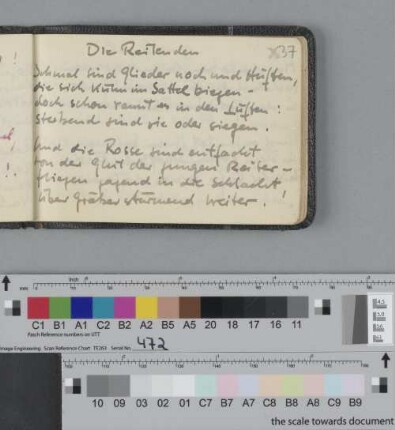 Die Reitenden
Schmal sind Glieder noch und Hüften,
die sich kühn im Sattel biegen –
doch schon raunt es in den Lüften:
sterbend sind sie oder siegen.
Und die Rosse sind entfacht
von der Glut der jungen Reiter –
fliegen jagend in die Schlacht,
über Gräber stürmend weiter.
inch
C1 B1 A1 C2 B2 A2 B5 A5 20 18 17 16 11
Patch Reference numbers on UTT
Image Engineering Scan Reference Chart TE263 Serial No. 472
10 09 03 02 01 C7 B7 A7 C8 B8 A8 C9 B9
the scale towards document